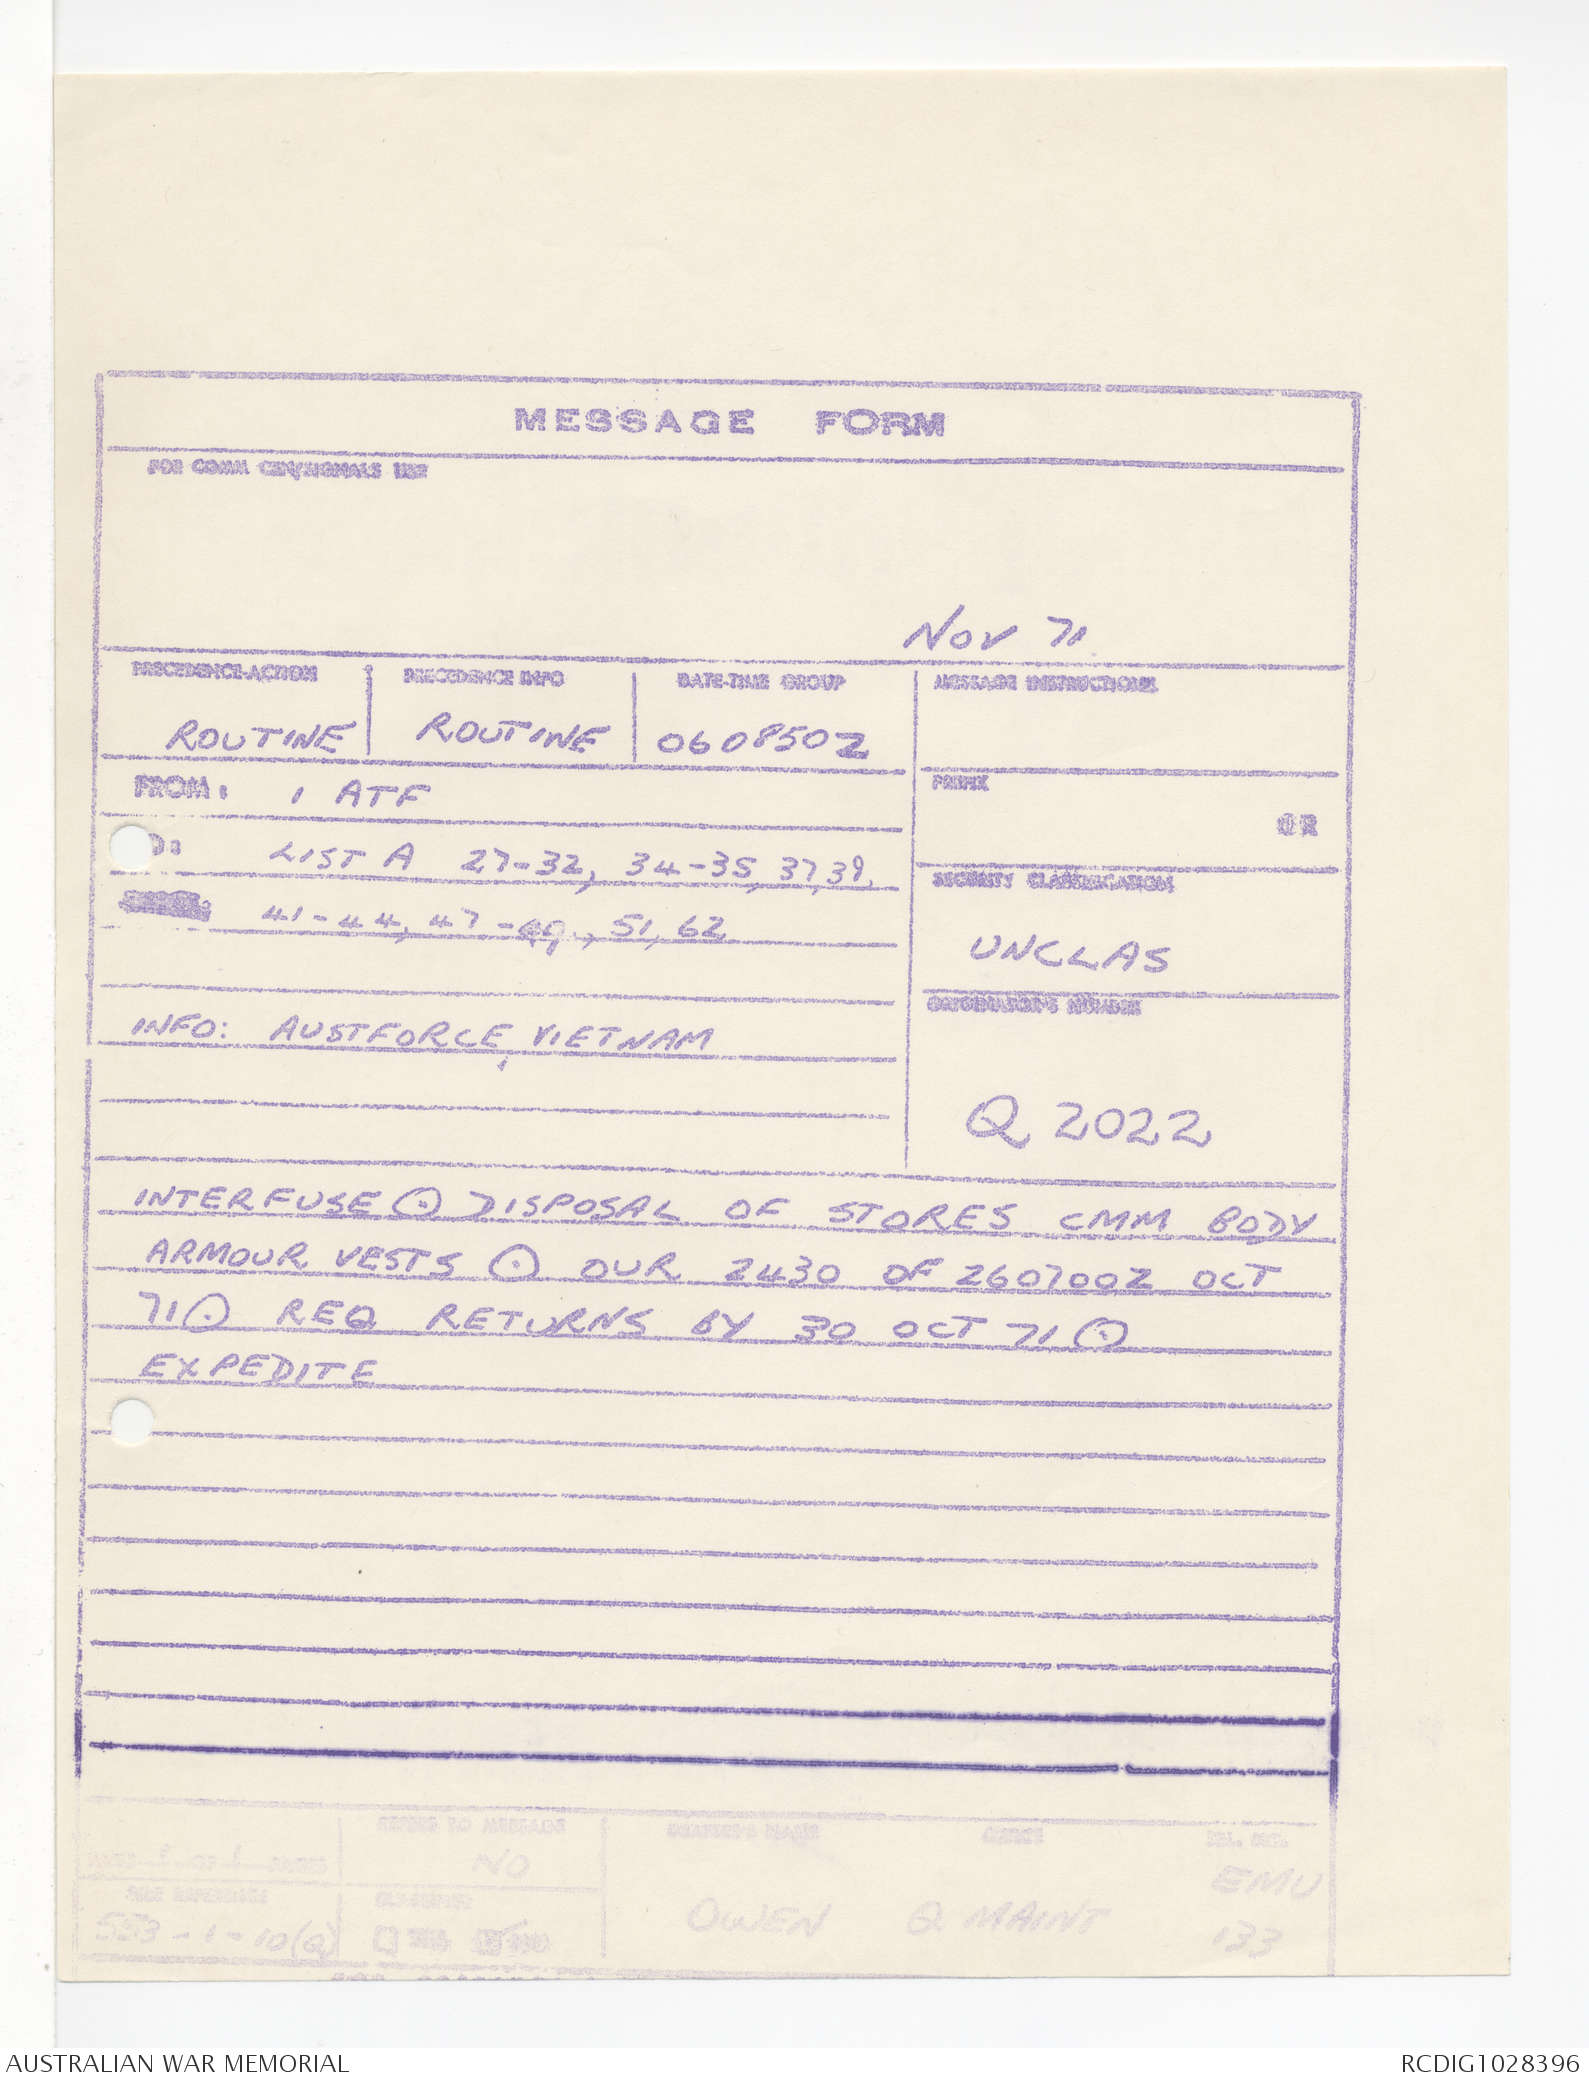 MESSAGE FORM
FOR COMM CEN/SIGNALS USE
NOV 71
PRECEDENCE-ACTION PRECEDENCE INFO DATE-TIME GROUP MESSAGE INSTRUCTIONS
ROUTINE ROUTINE 060850Z
FROM: 1 ATF PREFIX
GR
LIST A 27-32, 34-35, 37, 39, SECURITY CLASSIFICATION
41-44, 47-49, 51, 62
UNCLAS
ORIGINATOR'S NUMBER
INFO: AUSTFORCE, VIETNAM
Q 2022
INTERFUSE ⊙ DISPOSAL OF STORES CMM BODY
ARMOUR VESTS ⊙ OUR 2430 OF 260700Z OCT
71 ⊙ REQ RETURNS BY 30 OCT 71 ⊙
EXPEDITE
REFERS TO MESSAGE DRAFTER'S NAME OFFICE TEL. NO.
PAGE 1 OF 1 PAGES NO EMU
FILE REFERENCE CLASSIFIED
553-1-10(Q) OWEN Q MAINT 133
AUSTRALIAN WAR MEMORIAL RCDIG1028396